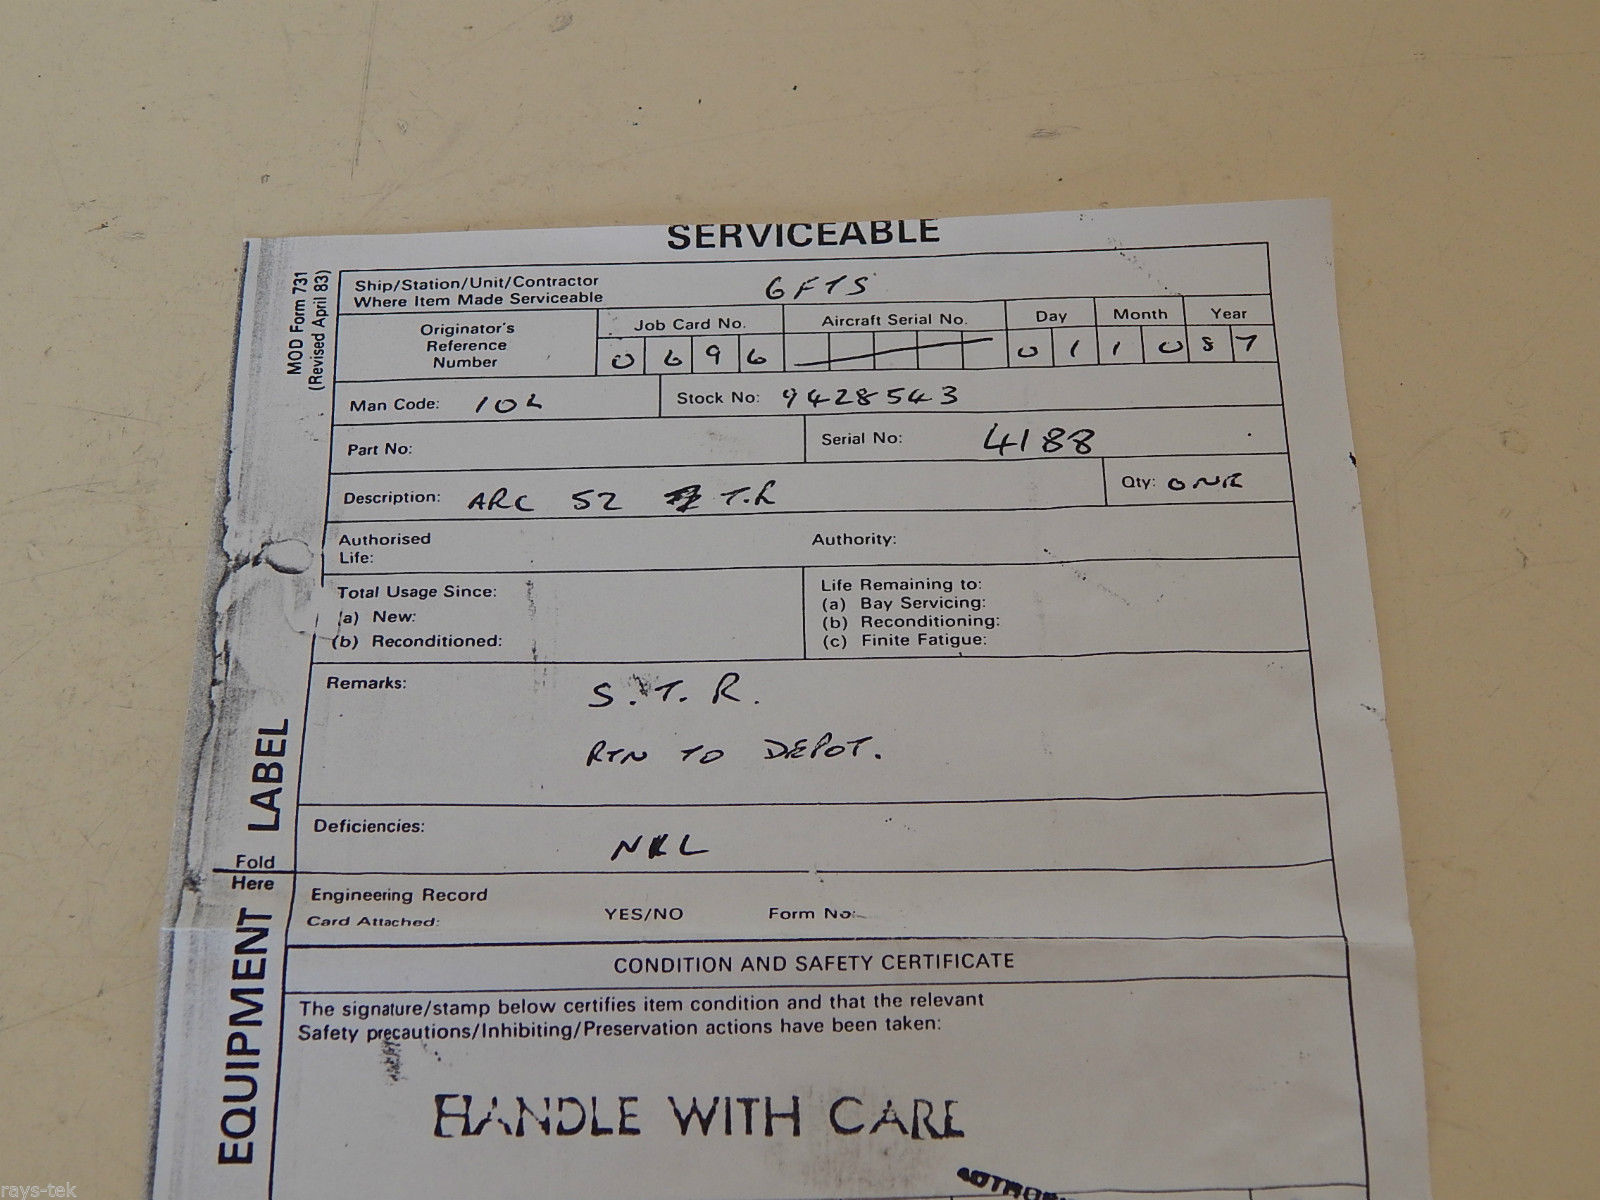 SERVICEABLE
MOD Form 731
(Revised April 83)
Ship/Station/Unit/Contractor
Where Item Made Serviceable
6FTS
Originator's
Reference
Number
Job Card No.
0696
Aircraft Serial No.
Day
01
Month
10
Year
87
Man Code: 10L
Stock No: 9428543
Part No:
Serial No: 4188
Description: ARC 52 T.R
Qty: ONE
Authorised
Life:
Authority:
Total Usage Since:
(a) New:
(b) Reconditioned:
Life Remaining to:
(a) Bay Servicing:
(b) Reconditioning:
(c) Finite Fatigue:
Remarks: S.T.R.
RTN TO DEPOT.
Deficiencies: NIL
Engineering Record
Card Attached: YES/NO Form No:
EQUIPMENT LABEL
Fold
Here
CONDITION AND SAFETY CERTIFICATE
The signature/stamp below certifies item condition and that the relevant
Safety precautions/Inhibiting/Preservation actions have been taken:
HANDLE WITH CARE
rays-tek